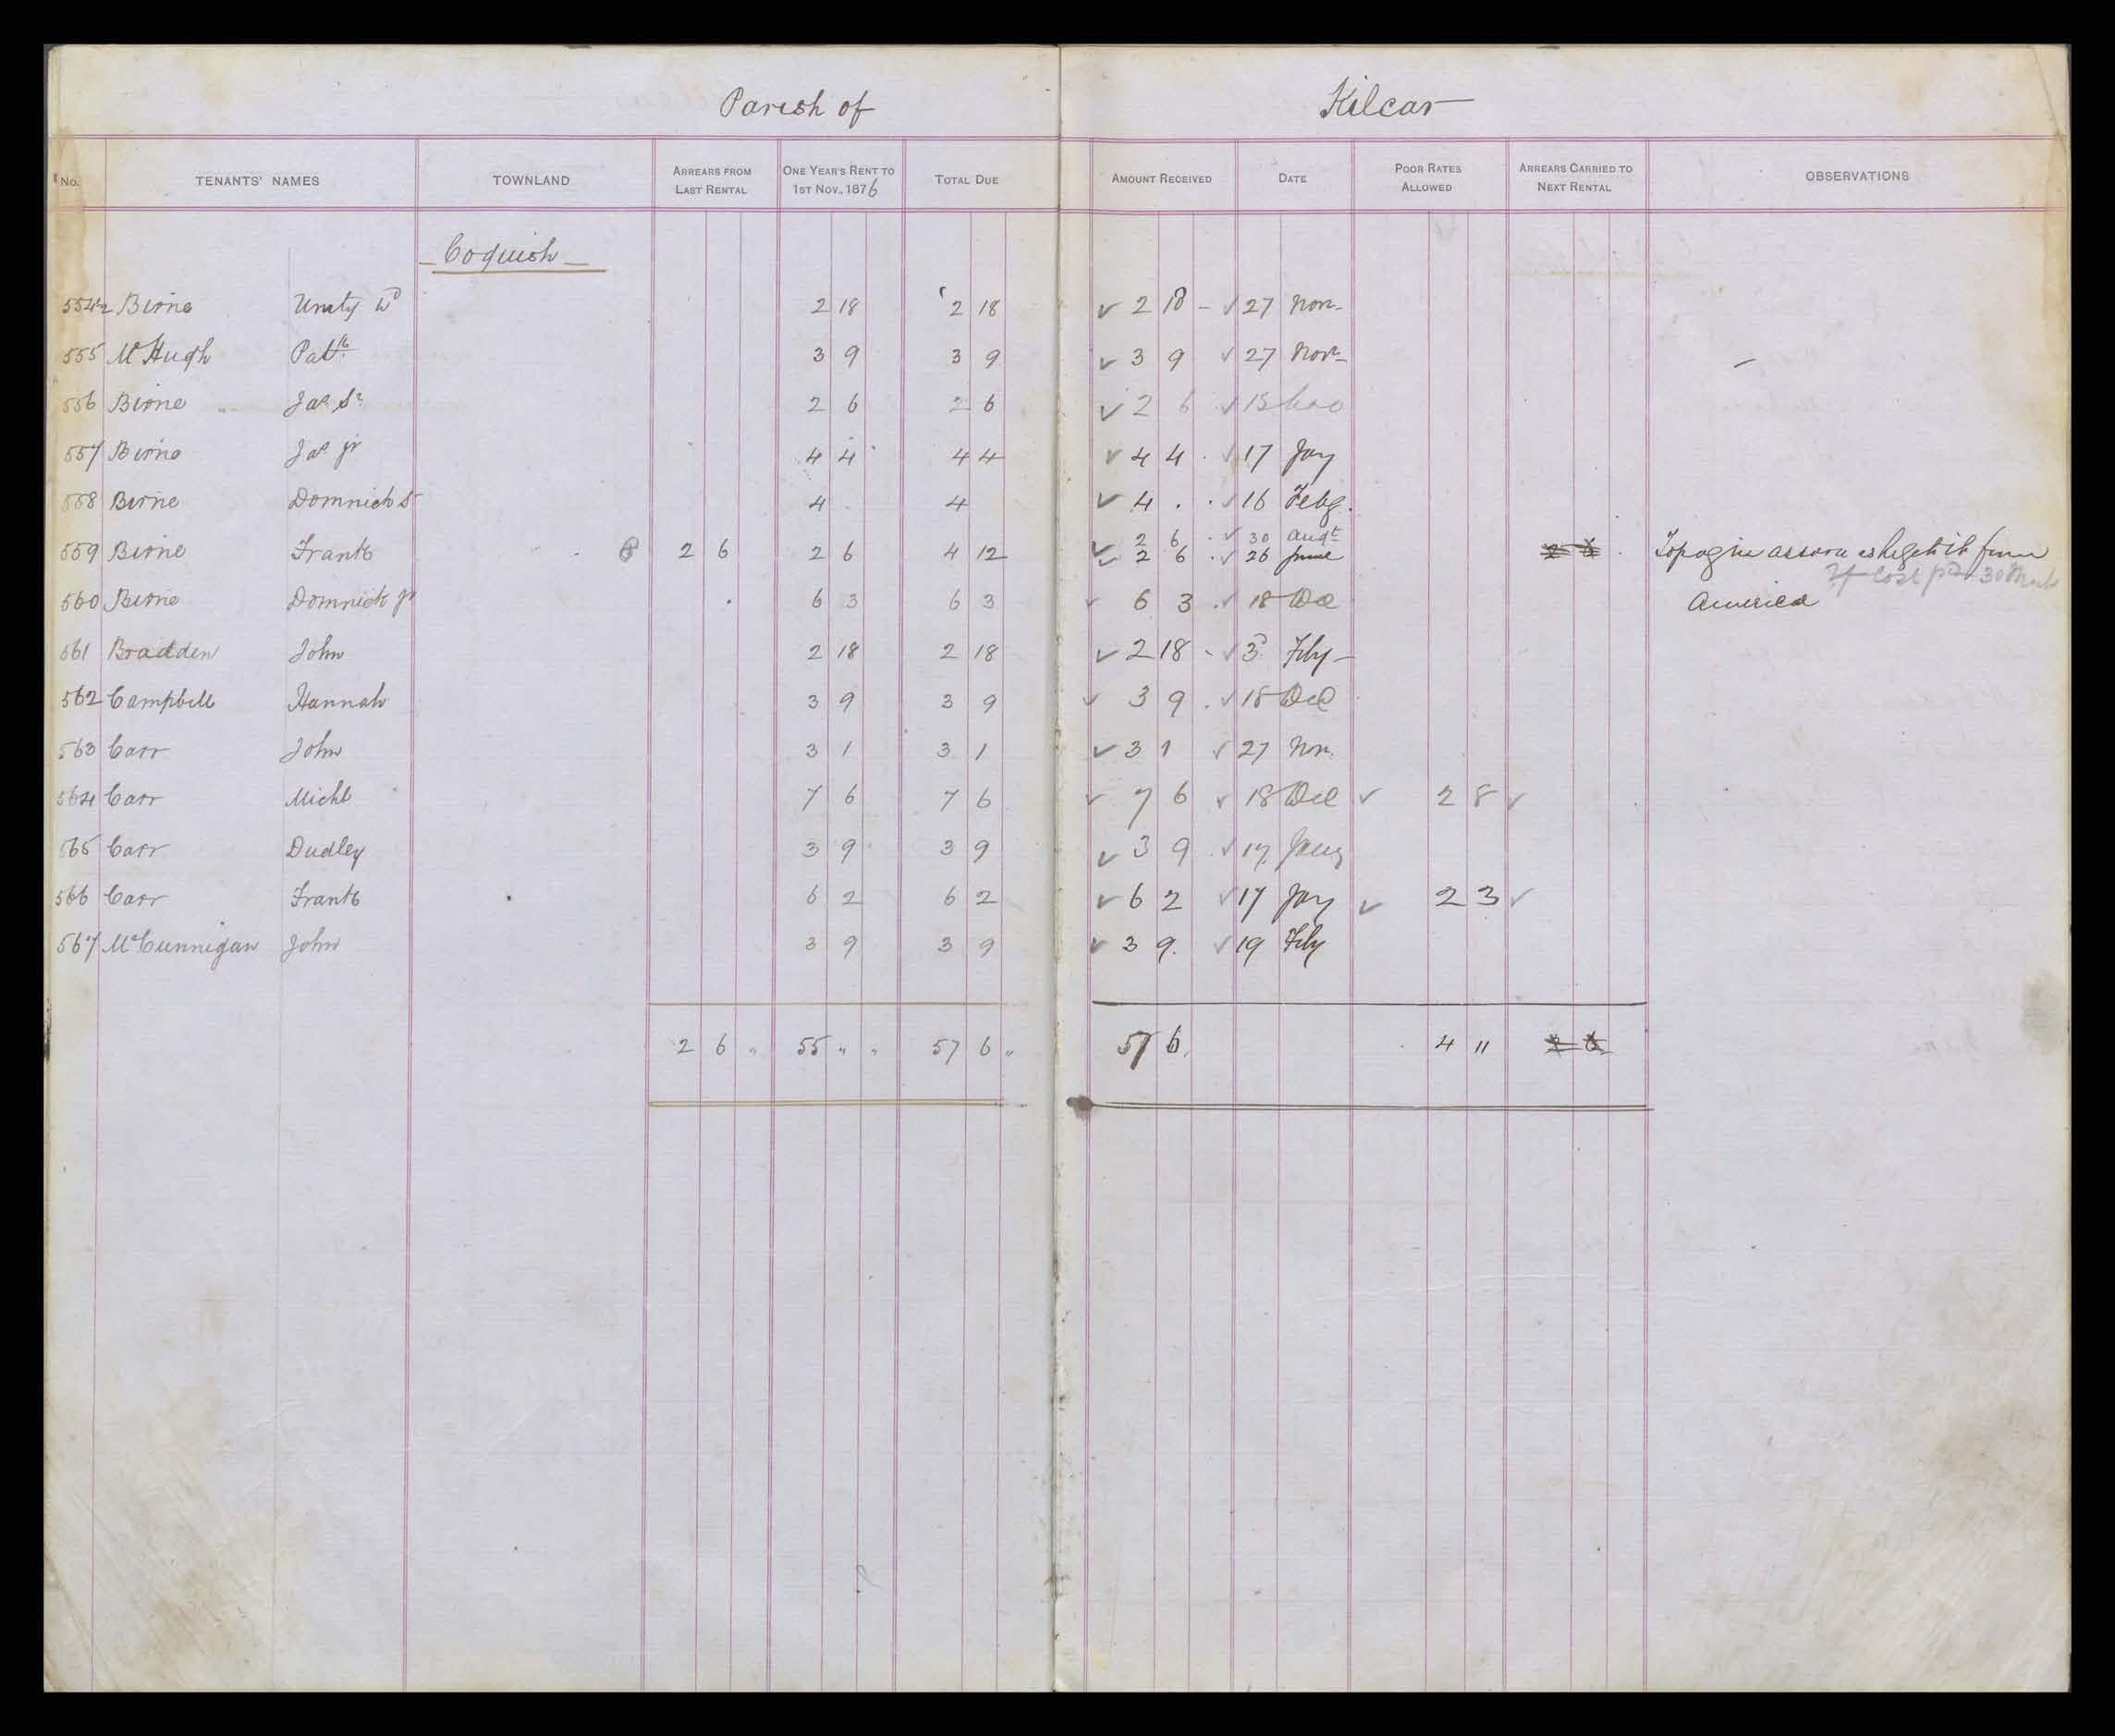 Parish of Kilcar
No. TENANTS' NAMES TOWNLAND ARREARS FROM LAST RENTAL ONE YEAR'S RENT TO 1ST NOV., 1876 TOTAL DUE AMOUNT RECEIVED DATE POOR RATES ALLOWED ARREARS CARRIED TO NEXT RENTAL OBSERVATIONS
Coguish
554½ Birne Unity Wd 2 18 2 18 2 18 - 27 Nov.
555 McHugh Patk 3 9 3 9 3 9 27 Nov.
556 Birne Jas Sr 2 6 2 6 2 6
557 Birne Jas jr 4 4 4 4 4 4 17 Jay
558 Birne Domnick S 4 4 4 . . 16 Feby.
559 Birne Frank 2 6 2 6 4 12 2 6 30 Augt
2 6 26 June 2 6 To pay in as he gets it from
560 Birne Domnick jr 6 3 6 3 6 3 18 Dec America
561 Bradden John 2 18 2 18 2 18 - 3d Feby
562 Campbell Hannah 3 9 3 9 3 9 18 Dec
563 Carr John 3 1 3 1 3 1 27 Nov.
564 Carr Michl 7 6 7 6 7 6 18 Dec 2 8
565 Carr Dudley 3 9 3 9 3 9 17 Jany
566 Carr Frank 6 2 6 2 6 2 17 Jay 2 3
567 McCunnigan John 3 9 3 9 3 9 19 Feby
2 6 " 55 " " 57 6 " 57 6 4 11 2 6